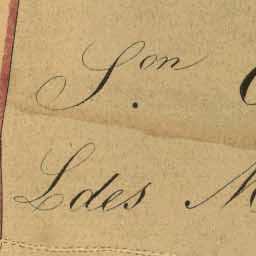 S.on
Ldes M